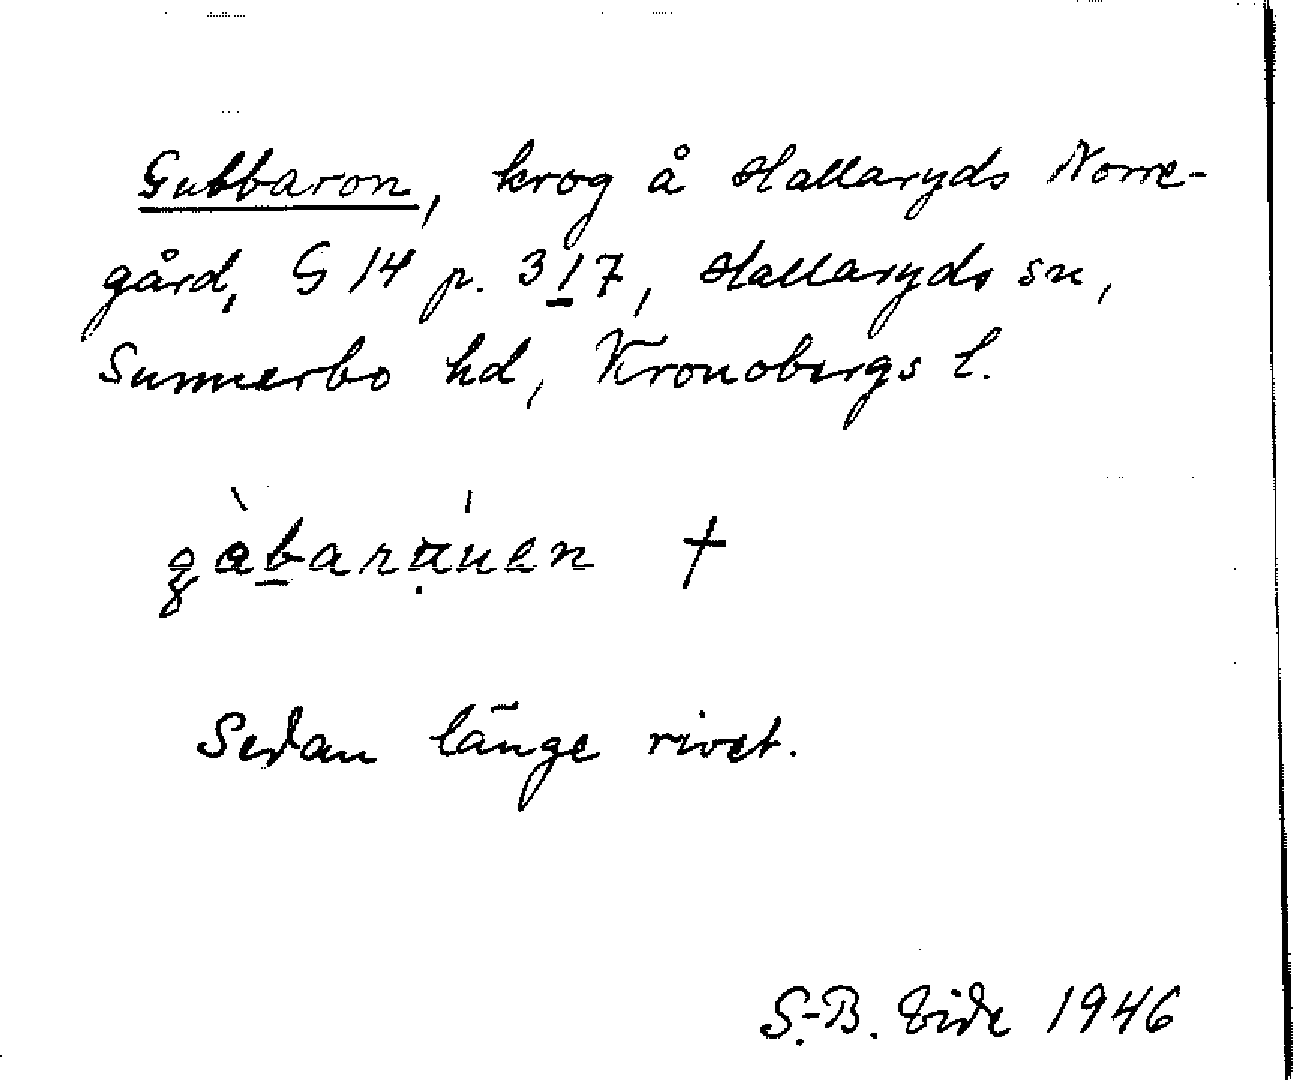 Gubbaron, krog å Hallaryds Norre-
gård, G 14 p. 317, Hallaryds sn,
Sunnerbo hd, Kronobergs l.
Sedan länge rivet.
S.-B. Vide 1946